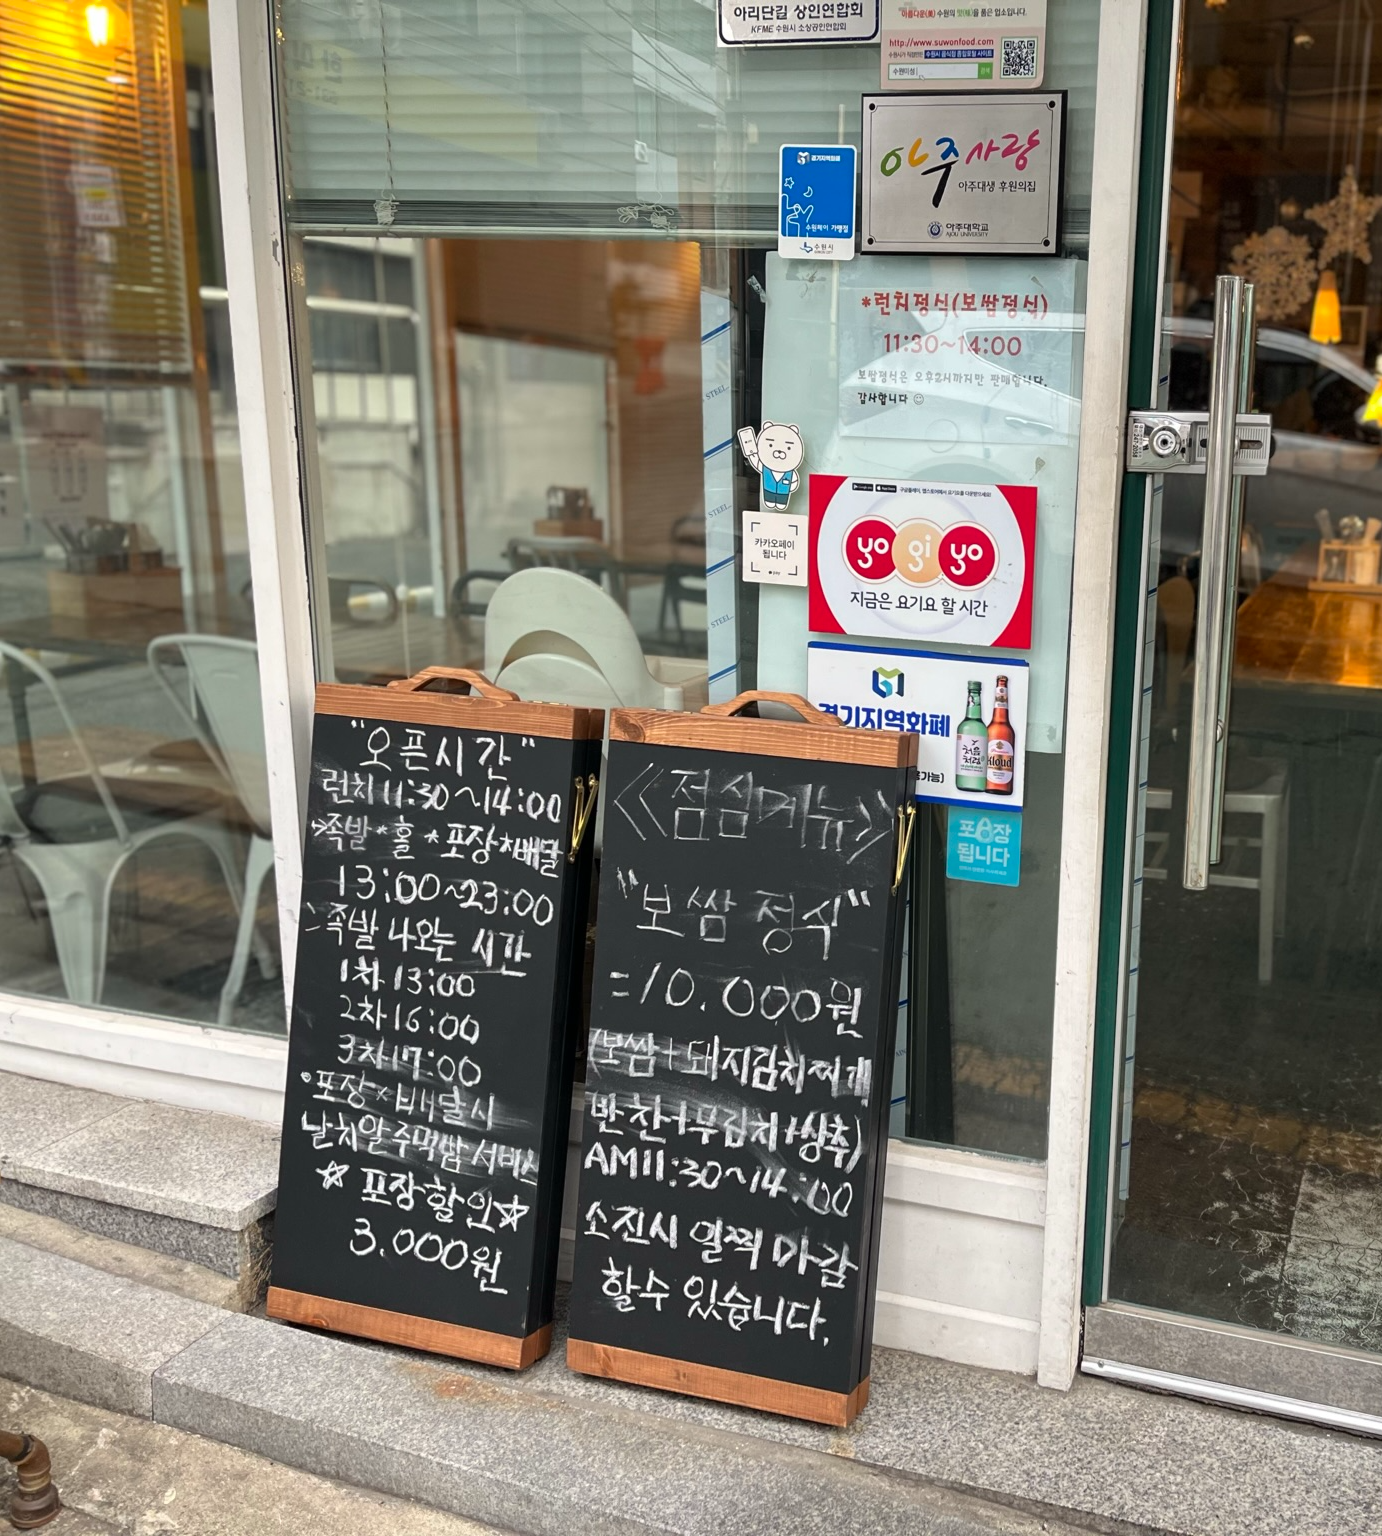 아리단길 상인연합회
KFME 수원시 소상공인연합회
아름다운(美) 수원의 맛(味)을 품은 업소입니다.
http://www.suwonfood.com
수원시가 직접만든 수원시 음식점 종합포털 사이트
수원미성
검색
아주사랑
아주대생 후원의집
아주대학교
AJOU UNIVERSITY
경기지역화폐
수원페이 가맹점
수원시
*런치정식(보쌈정식)
11:30~14:00
보쌈정식은 오후2시까지만 판매합니다.
감사합니다 ☺
STEEL
STEEL
STEEL
카카오페이
됩니다
pay
구글플레이, 앱스토어에서 요기요를 다운받으세요!
yo gi yo
지금은 요기요 할 시간
경기지역화폐
가능)
처음
처럼
Kloud
포장
됩니다
"오픈시간"
런치 11:30~14:00
족발*홀*포장*배달
13:00~23:00
족발 나오는 시간
1차 13:00
2차 16:00
3차 17:00
포장×배달시
날치알주먹밥 서비스
☆ 포장할인☆
3.000원
<<점심메뉴>>
"보쌈정식"
=10.000원
(보쌈+돼지김치찌개
반찬+무김치+상추)
AM11:30~14:00
소진시 일찍 마감
할수 있습니다.